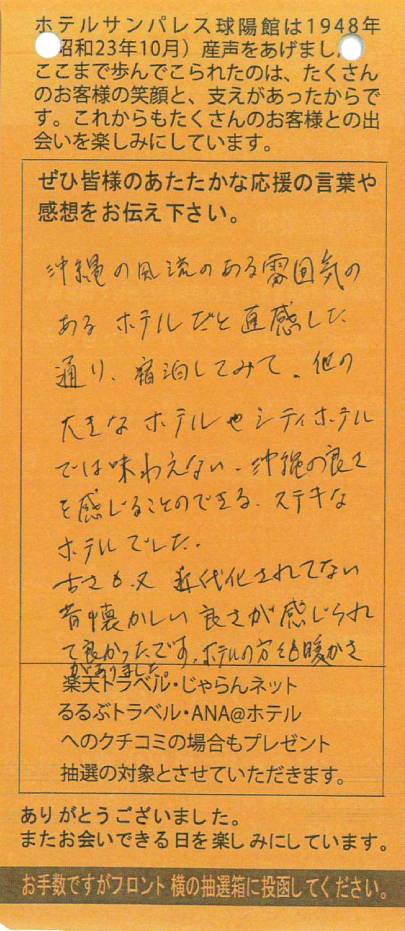 ホテルサンパレス球陽館は1948年
昭和23年10月）産声をあげまし
ここまで歩んでこられたのは、たくさん
のお客様の笑顔と、支えがあったからで
す。これからもたくさんのお客様との出
会いを楽しみにしています。
ぜひ皆様のあたたかな応援の言葉や
感想をお伝え下さい。
沖縄の風流のある雰囲気の
ある ホテルだと直感した
通り、宿泊してみて、他の
大きなホテルやシティホテル
では味わえない、沖縄の良さ
を感じることのできる、ステキな
ホテルでした。
古さも又 近代化されてない
昔懐かしい良さが感じられ
て良かったです。ホテルの方も暖かさ
がありました。
楽天トラベル・じゃらんネット
るるぶトラベル・ANA@ホテル
へのクチコミの場合もプレゼント
抽選の対象とさせていただきます。
ありがとうございました。
またお会いできる日を楽しみにしています。
お手数ですがフロント横の抽選箱に投函してください。